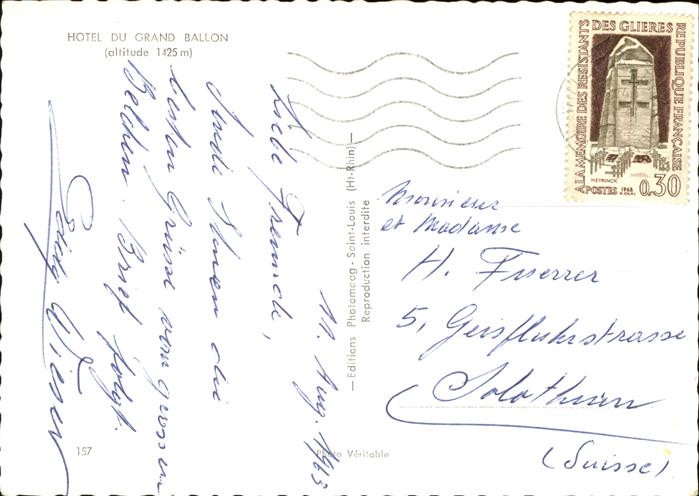 HOTEL DU GRAND BALLON
(altitude 1425 m)
11. Aug. 1963
Liebe Freunde,
sende Ihnen die
besten Grüsse vom grossen
Belchen. Brief folgt.
157
—Editions Photomecag - Saint-Louis (Ht-Rhin)—
Reproduction interdite
Photo Véritable
A LA MEMOIRE DES RESISTANTS DES GLIERES
REPUBLIQUE FRANÇAISE
HEYRINCK
POSTES
0,30
Monsieur
et Madame
H. Fuerrer
5, Geisfluhstrasse
Solothurn
(Suisse)